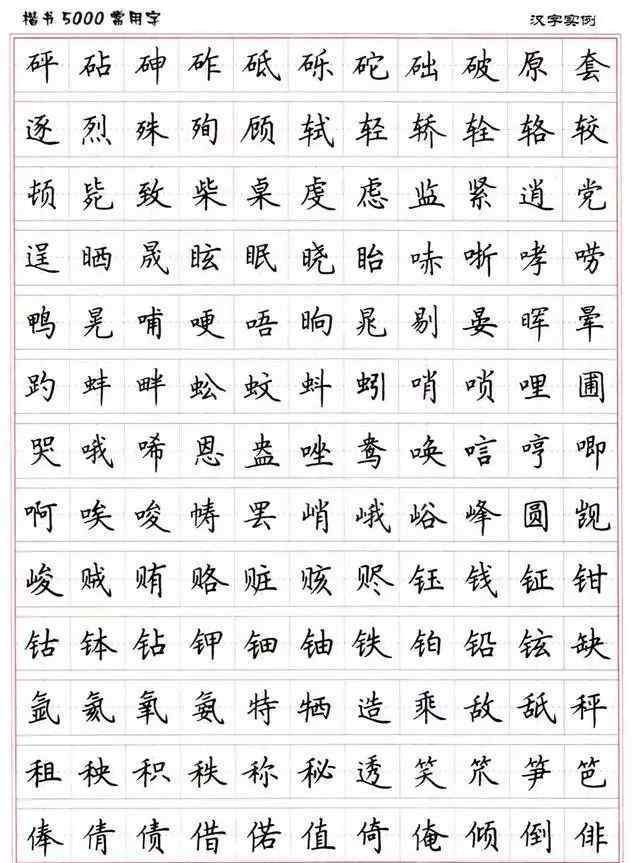 楷书5000常用字 汉字实例
砰 砧 砷 砟 砥 砾 砣 础 破 原 套
逐 烈 殊 殉 顾 轼 轻 轿 辁 辂 较
顿 毙 致 柴 桌 虔 虑 监 紧 逍 党
逞 晒 晟 眩 眠 晓 眙 哧 哳 哮 唠
鸭 晃 哺 哽 唔 晌 晁 剔 晏 晖 晕
趵 蚌 畔 蚣 蚊 蚪 蚓 哨 唢 哩 圃
哭 哦 唏 恩 盎 唑 鸯 唤 唁 哼 唧
啊 唉 唆 帱 罢 峭 峨 峪 峰 圆 觊
峻 贼 贿 赂 赃 赅 赆 钰 钱 钲 钳
钴 钵 钻 钾 钿 铀 铁 铂 铅 铉 缺
氩 氦 氧 氨 特 牺 造 乘 敌 舐 秤
租 秧 积 秩 称 秘 透 笑 笊 笋 笆
俸 倩 债 借 偌 值 倚 俺 倾 倒 俳